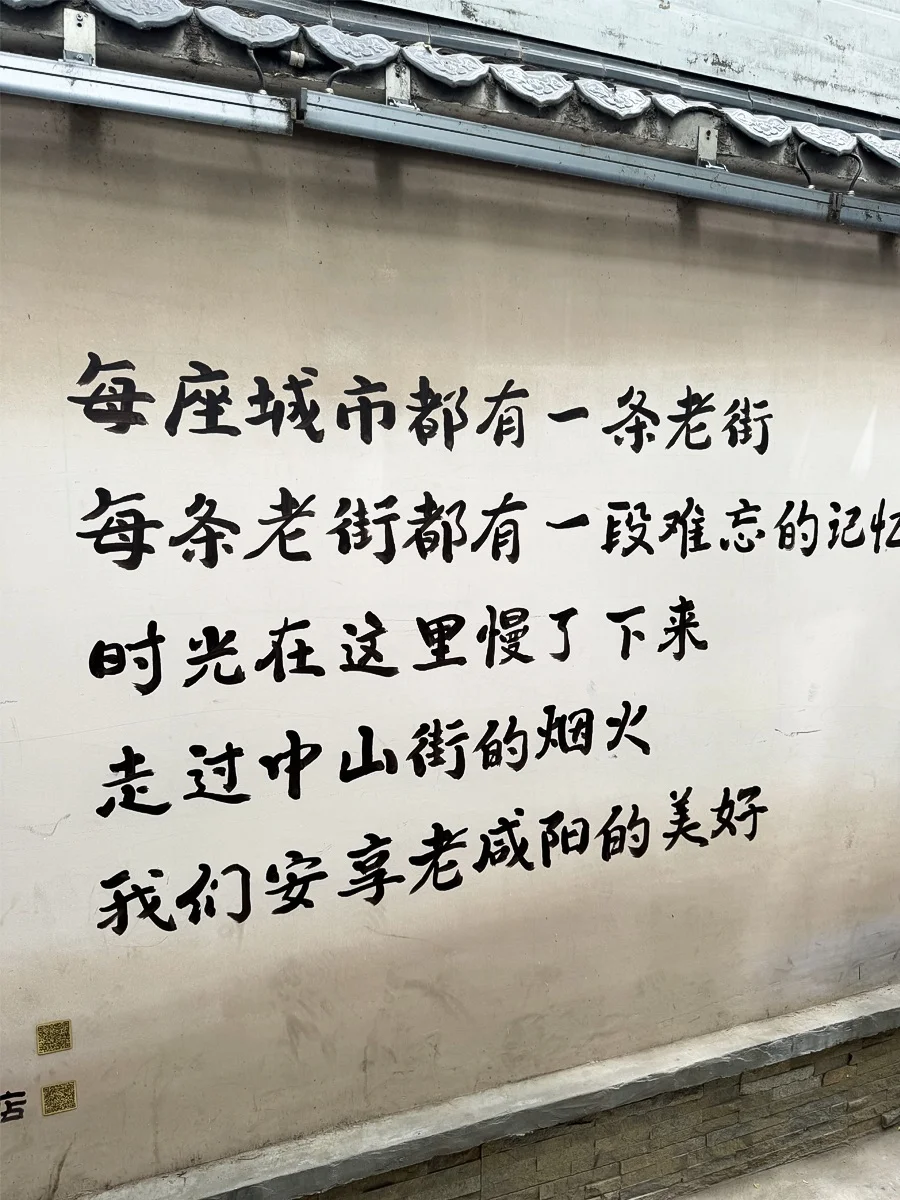 每座城市都有一条老街
每条老街都有一段难忘的记忆
时光在这里慢了下来
走过中山街的烟火
我们安享老咸阳的美好
店